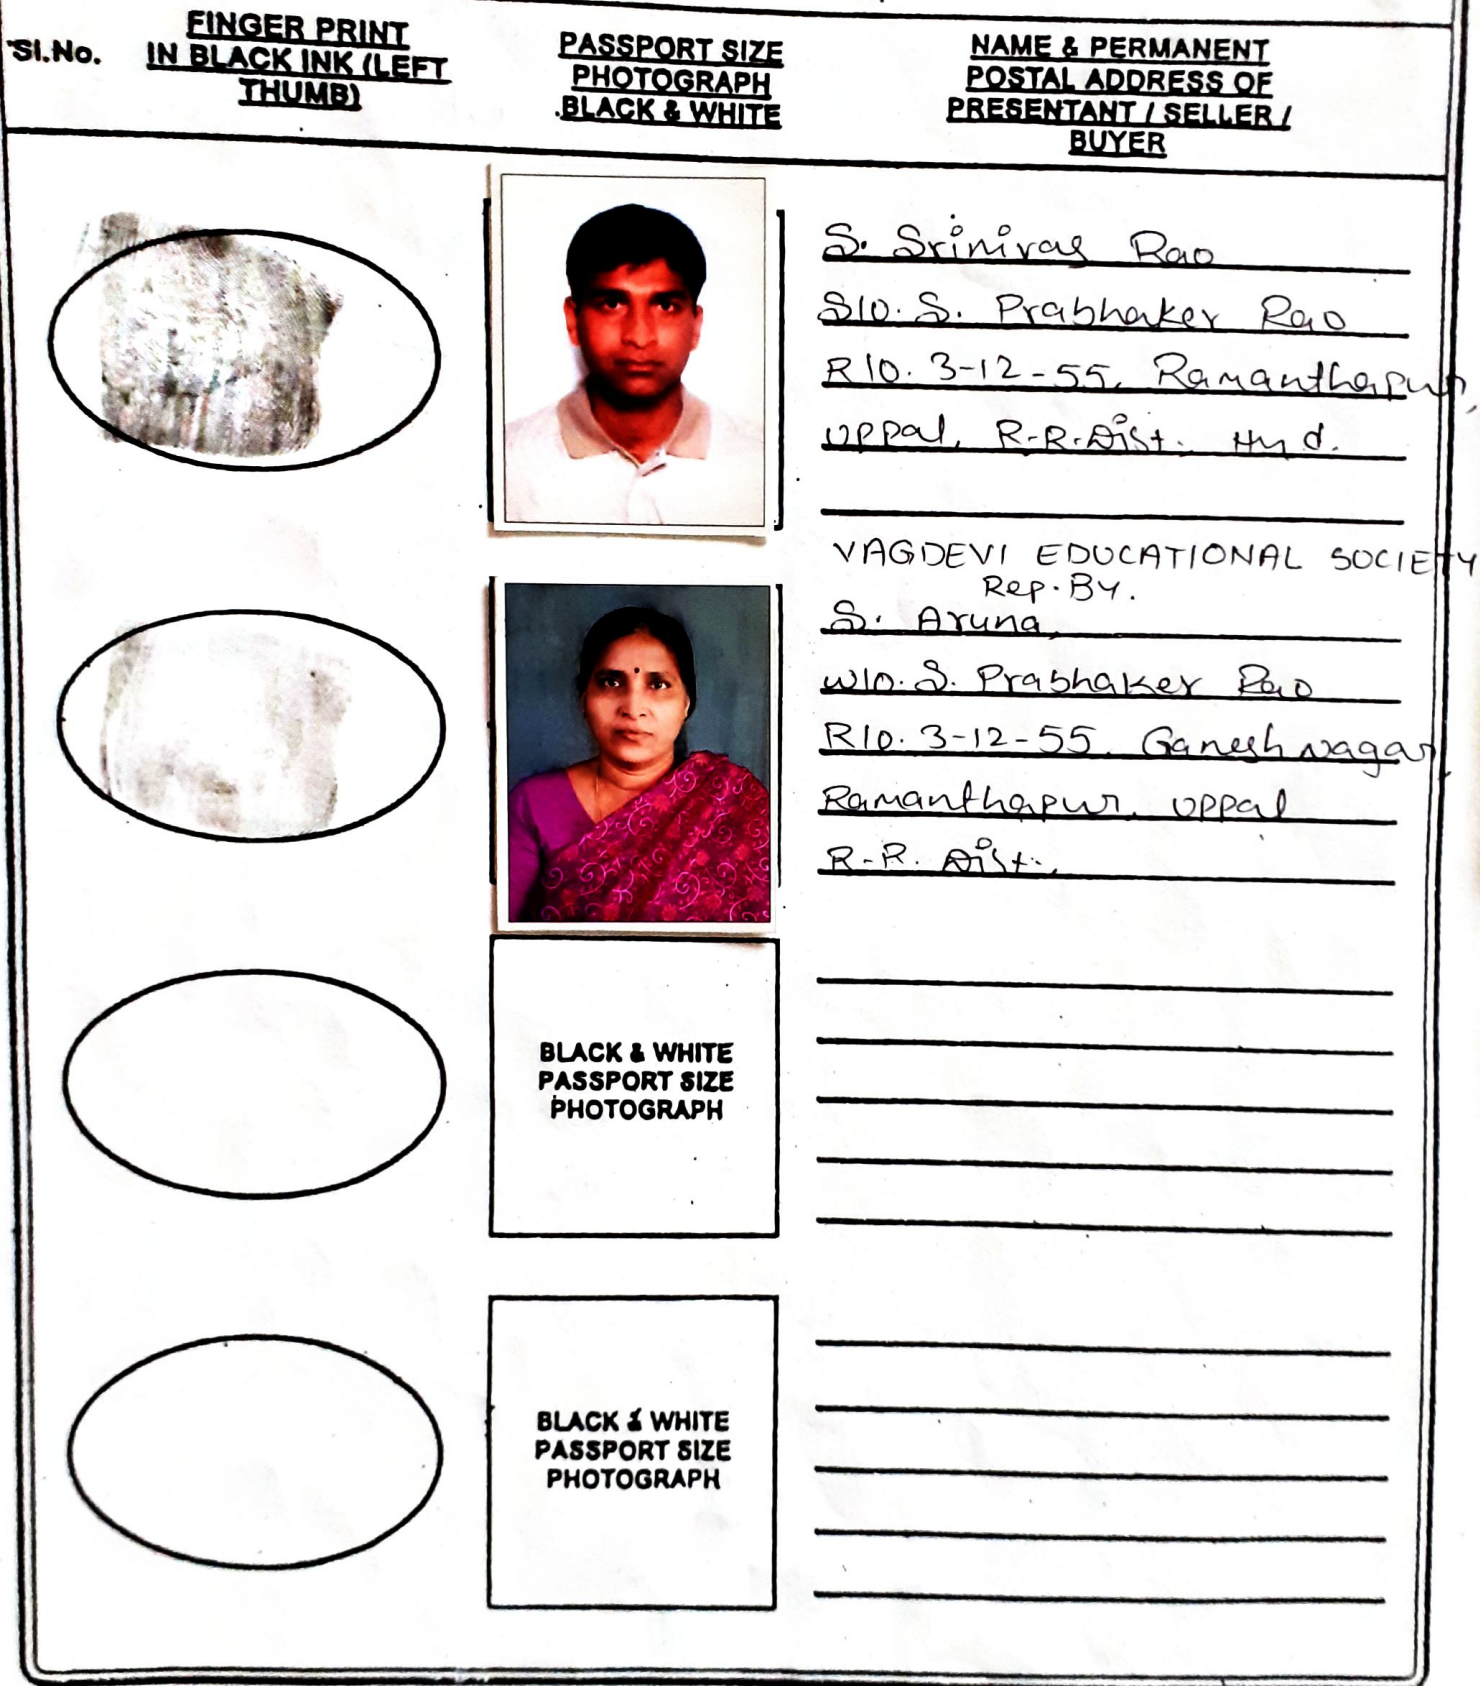 Sl.No.
FINGER PRINT
IN BLACK INK (LEFT
THUMB)
PASSPORT SIZE
PHOTOGRAPH
BLACK & WHITE
NAME & PERMANENT
POSTAL ADDRESS OF
PRESENTANT / SELLER /
BUYER
S. Srinivas Rao
S/o. S. Prabhaker Rao
R/o. 3-12-55, Ramanthapur,
Uppal, R.R.Dist. Hyd.
VAGDEVI EDUCATIONAL SOCIETY
Rep. By.
S. Aruna,
W/o. S. Prabhaker Rao
R/o. 3-12-55, Ganesh nagar,
Ramanthapur, Uppal
R.R. Dist.,
BLACK & WHITE
PASSPORT SIZE
PHOTOGRAPH
BLACK & WHITE
PASSPORT SIZE
PHOTOGRAPH